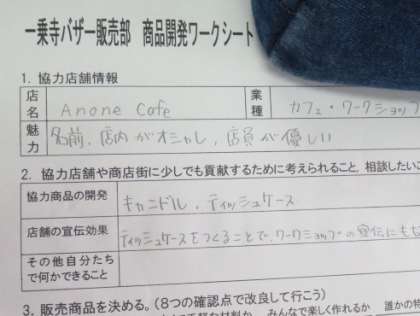 一乗寺バザー販売部 商品開発ワークシート
1. 協力店舗情報
店名 Anone Cafe 業種 カフェ・ワークショップ
魅力 名前、店内がオシャレ、店員が優しい
2. 協力店舗や商店街に少しでも貢献するために考えられること、相談したいこ
協力商品の開発 キャンドル、ティッシュケース
店舗の宣伝効果 ティッシュケースをつくることで、ワークショップの宣伝にも
その他自分たちで何かできること
3. 販売商品を決める。(8つの確認点で改良して行こう)
みんなで楽しく作れるか 誰かの